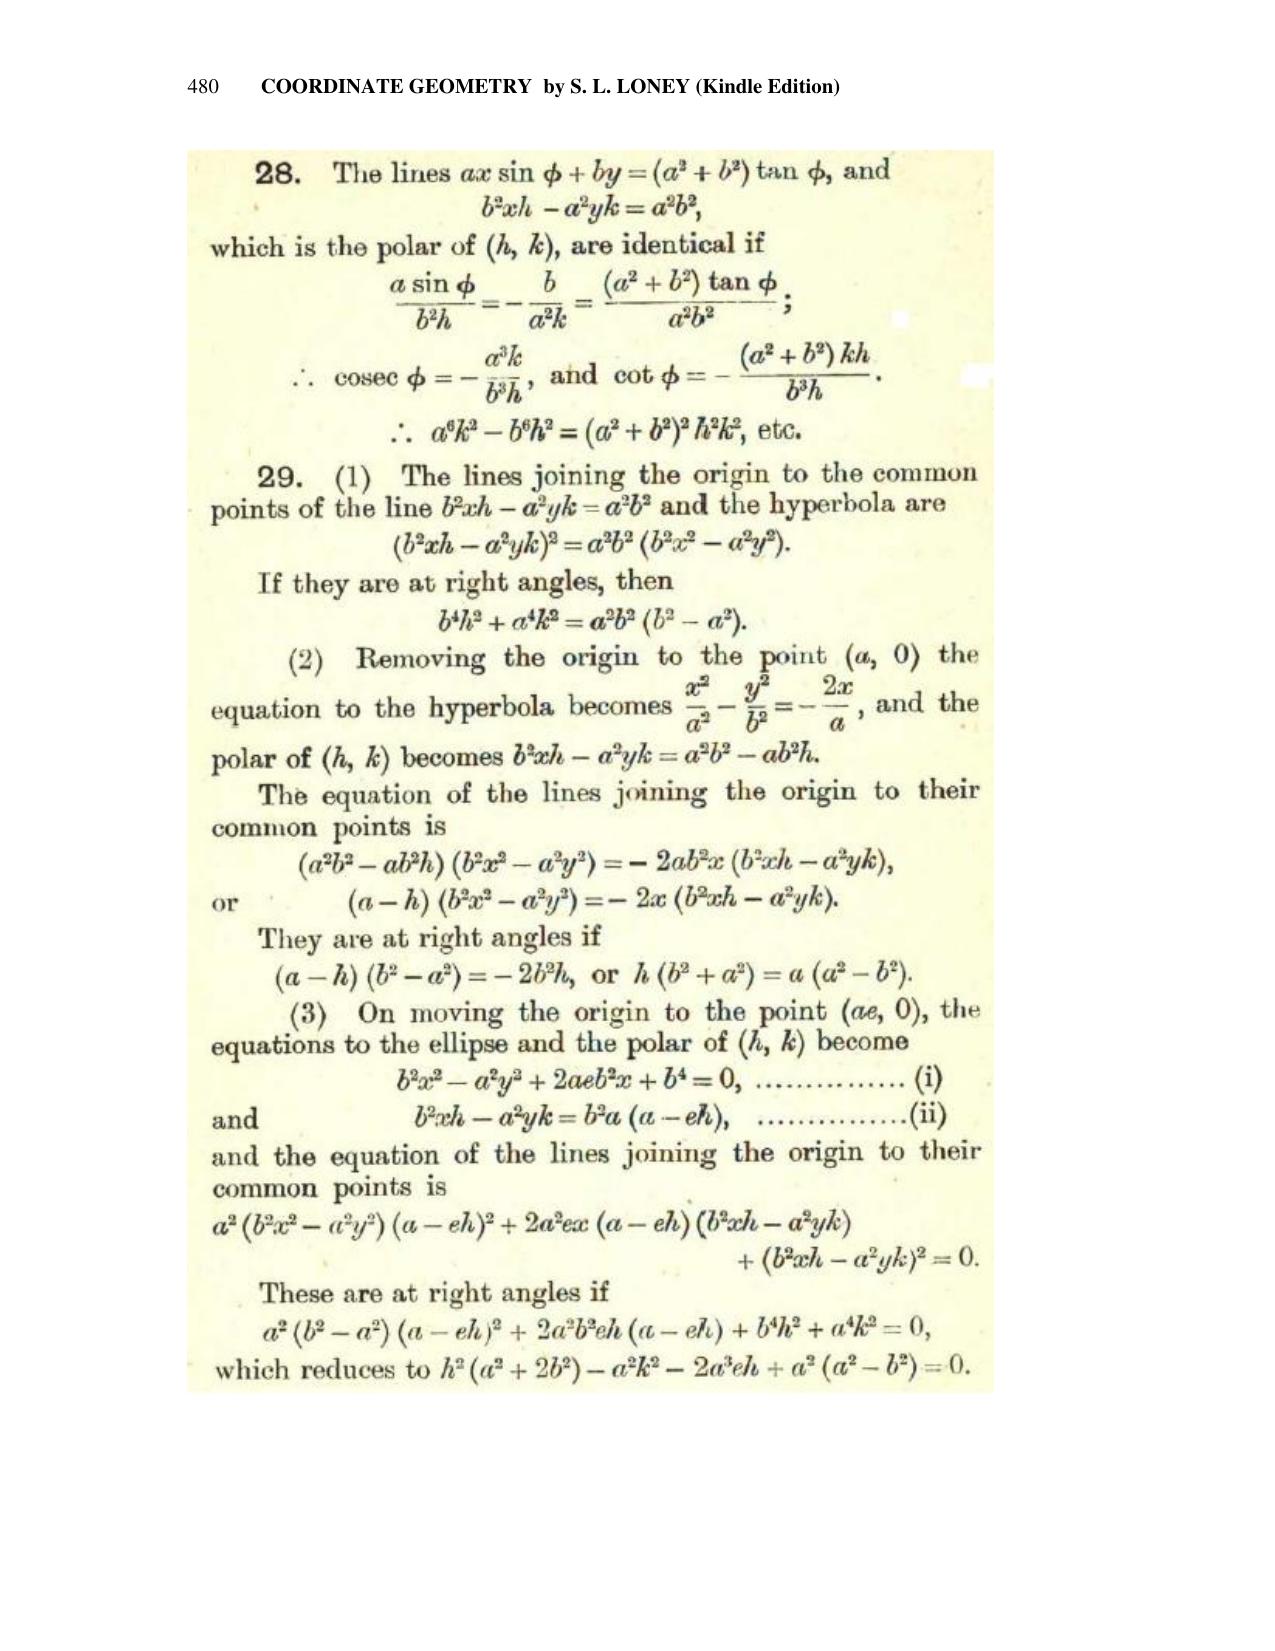 480 COORDINATE GEOMETRY by S. L. LONEY (Kindle Edition)
28. The lines ax sin ϕ + by = (a² + b²) tan ϕ, and
b²xh − a²yk = a²b²,
which is the polar of (h, k), are identical if
a sin ϕ / b²h = − b / a²k = (a² + b²) tan ϕ / a²b² ;
∴ cosec ϕ = − a³k / b³h , and cot ϕ = − (a² + b²) kh / b³h .
∴ a⁶k² − b⁶h² = (a² + b²)² h²k², etc.
29. (1) The lines joining the origin to the common
points of the line b²xh − a²yk = a²b² and the hyperbola are
(b²xh − a²yk)² = a²b² (b²x² − a²y²).
If they are at right angles, then
b⁴h² + a⁴k² = a²b² (b² − a²).
(2) Removing the origin to the point (a, 0) the
equation to the hyperbola becomes x²/a² − y²/b² = − 2x/a , and the
polar of (h, k) becomes b²xh − a²yk = a²b² − ab²h.
The equation of the lines joining the origin to their
common points is
(a²b² − ab²h) (b²x² − a²y²) = − 2ab²x (b²xh − a²yk),
or (a − h) (b²x² − a²y²) = − 2x (b²xh − a²yk).
They are at right angles if
(a − h) (b² − a²) = − 2b²h, or h (b² + a²) = a (a² − b²).
(3) On moving the origin to the point (ae, 0), the
equations to the ellipse and the polar of (h, k) become
b²x² − a²y² + 2aeb²x + b⁴ = 0, ............... (i)
and b²xh − a²yk = b²a (a − eh), ...............(ii)
and the equation of the lines joining the origin to their
common points is
a² (b²x² − a²y²) (a − eh)² + 2a²ex (a − eh) (b²xh − a²yk)
+ (b²xh − a²yk)² = 0.
These are at right angles if
a² (b² − a²) (a − eh)² + 2a²b²eh (a − eh) + b⁴h² + a⁴k² = 0,
which reduces to h² (a² + 2b²) − a²k² − 2a³eh + a² (a² − b²) = 0.